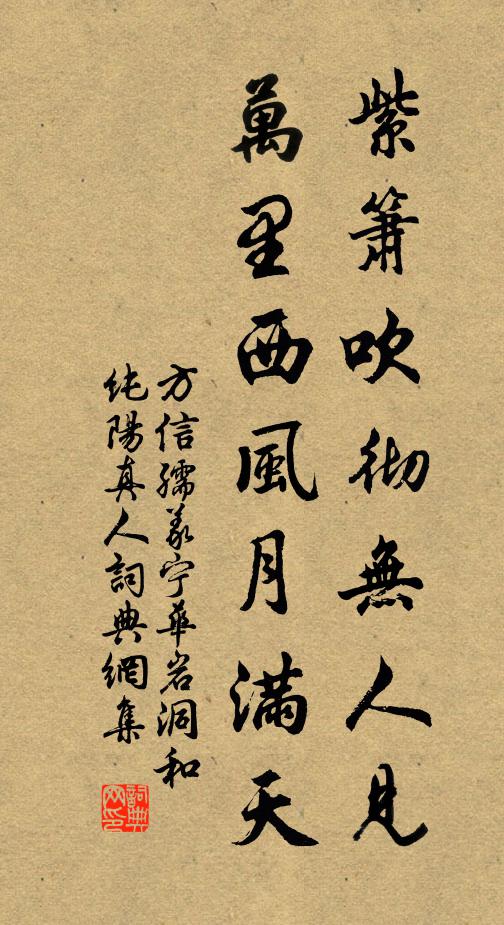 紫簫吹彻無人見
萬里西風月滿天
方信孺羕宁華岩洞和
纯陽真人詞典網集
詞典網印